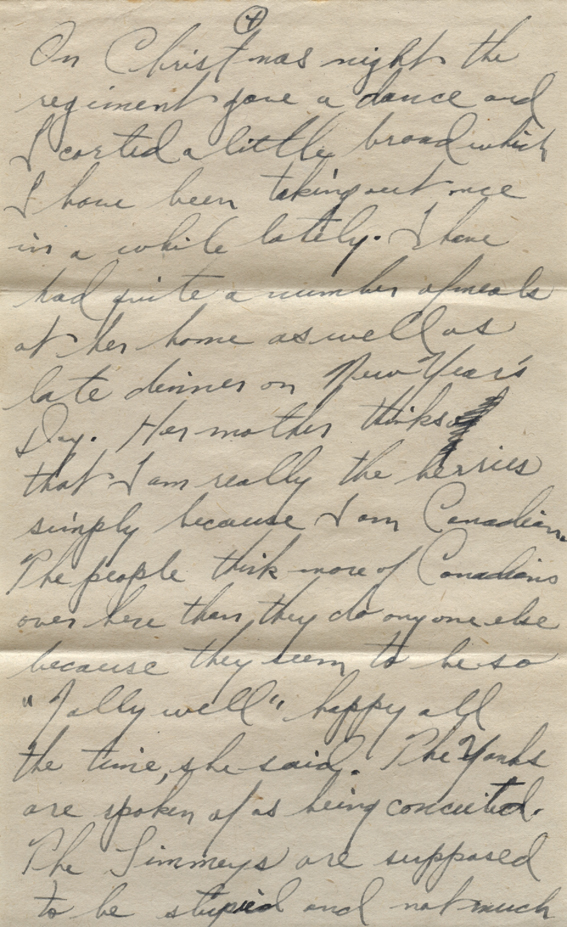 4
On Christmas night the
regiment gave a dance and
I corted a little broad which
I have been taking out once
in a while lately. I have
had quite a number of meals
at her home as well as
late dinner on New Year's
Day. Her mother thinks
that I am really the berries
simply because I am Canadian.
The people think more of Canadians
over here than they do anyone else
because they seem to be so
"Jolly well" happy all
the time, she said. The Yanks
are spoken of as being conceited.
The Limmeys are supposed
to be stupid and not much